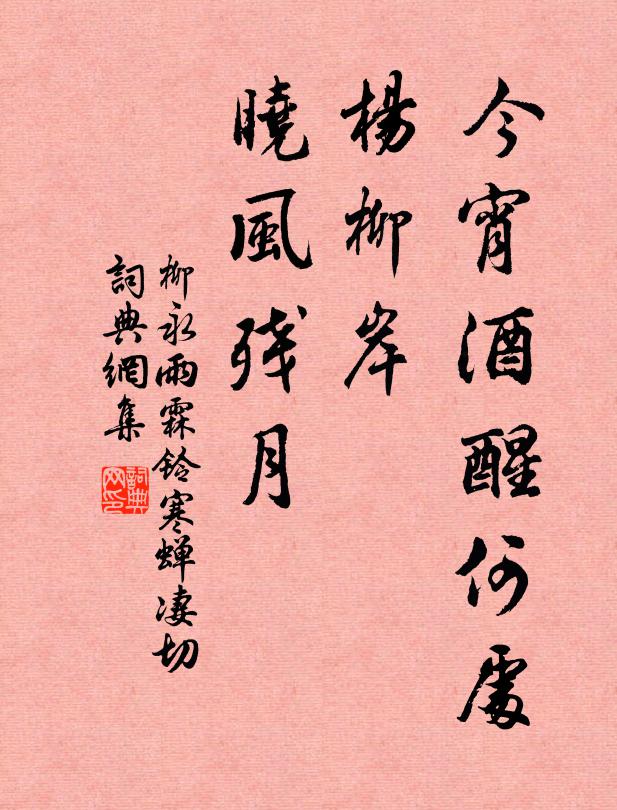 今宵酒醒何處
楊柳岸
曉風残月
柳永雨霖铃寒蝉凄切
詞典網集
詞典
网印